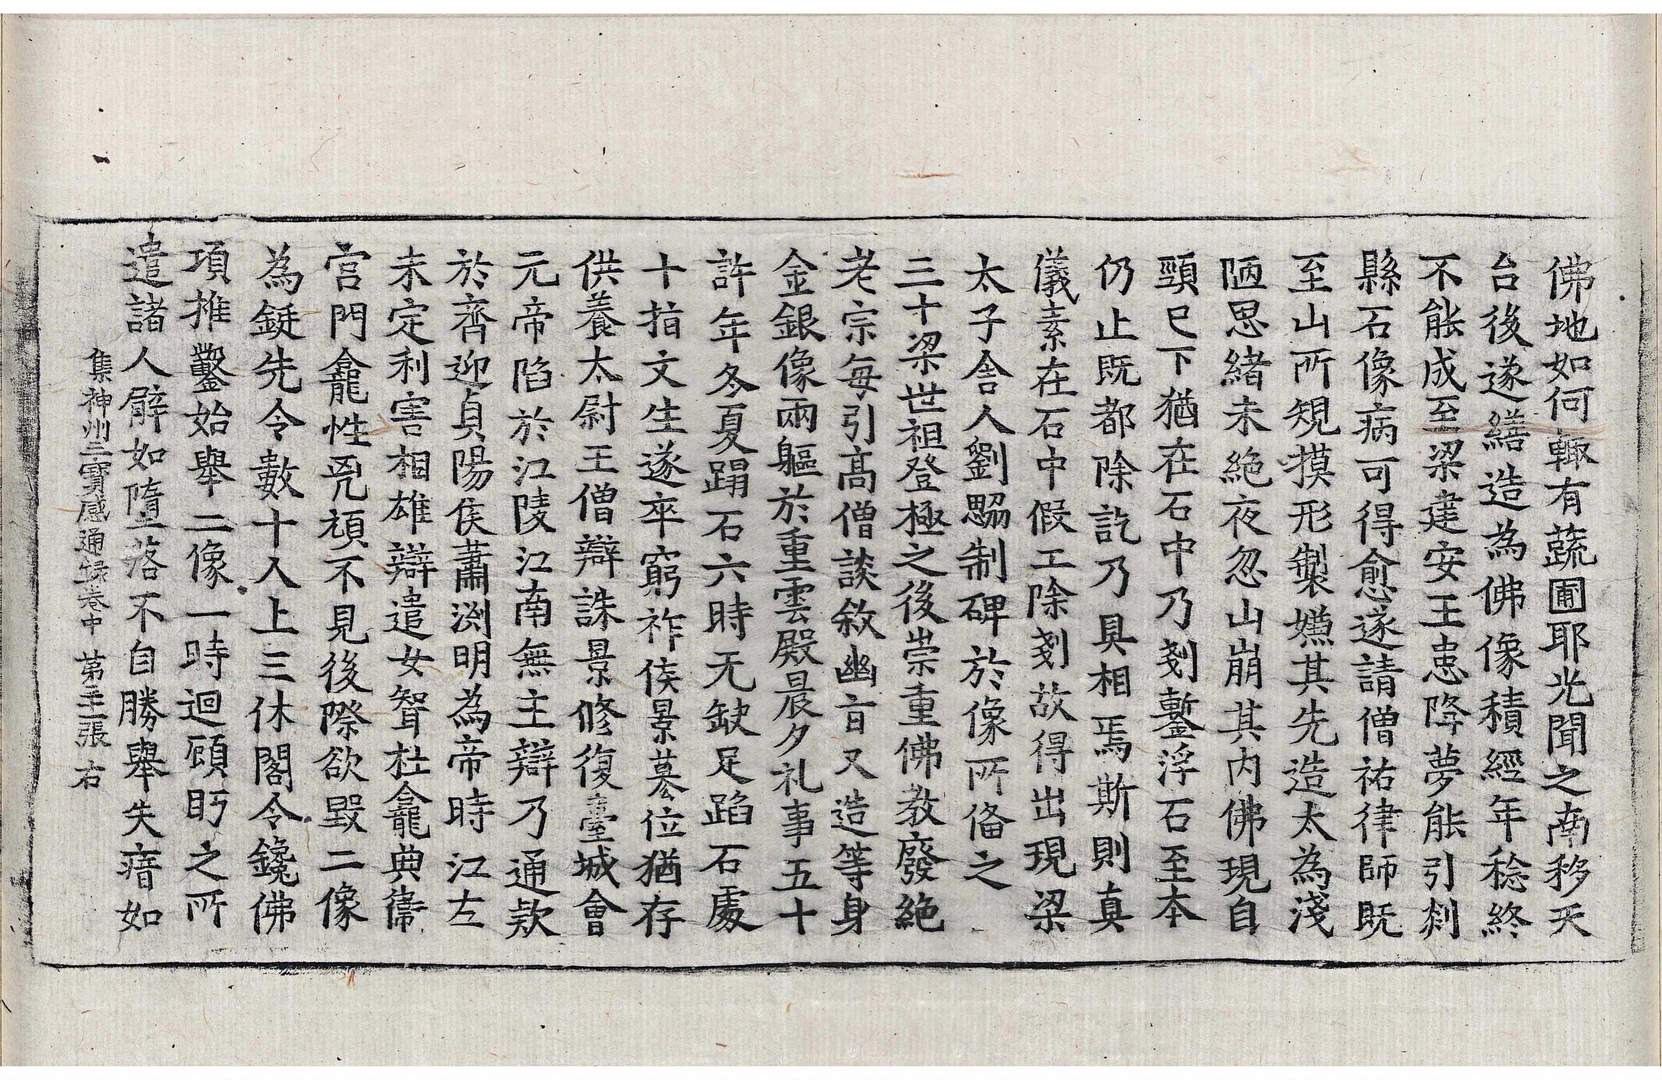 佛地如何輙有蔬圃耶光聞之南移天
台後遂繕造為佛像積經年稔終
不能成至梁建安王患降夢能引剡
縣石像病可得愈遂請僧祐律師既
至山所規摸形製嫌其先造太為淺
陋思緒未絶夜忽山崩其内佛現自
頸已下猶在石中乃剗鑿浮石至本
仍止既都除訖乃具相焉斯則真
儀素在石中假工除剗故得出現梁
太子舎人劉勰制碑於像所俻之
三十梁世祖登極之後崇重佛教廢絶
老宗每引髙僧談敘幽旨又造等身
金銀像兩軀於重雲殿晨夕礼事五十
許年冬夏蹋石六時无缺足蹈石處
十指文生遂卒窮祚侯景篡位猶存
供養太尉王僧辯誅景修復臺城會
元帝陷於江陵江南無主辯乃通款
於齊迎貞陽侯蕭渕明為帝時江左
未定利害相雄辯遣女聟杜龕典衞
宫門龕性兇頑不見後際欲毀二像
為鋌先令數十人上三休閣令鑱佛
項推鑿始舉二像一時迴顧眄之所
遣諸人臂如墮落不自勝舉失瘖如
集神州三寶感通録卷中 第三張 右